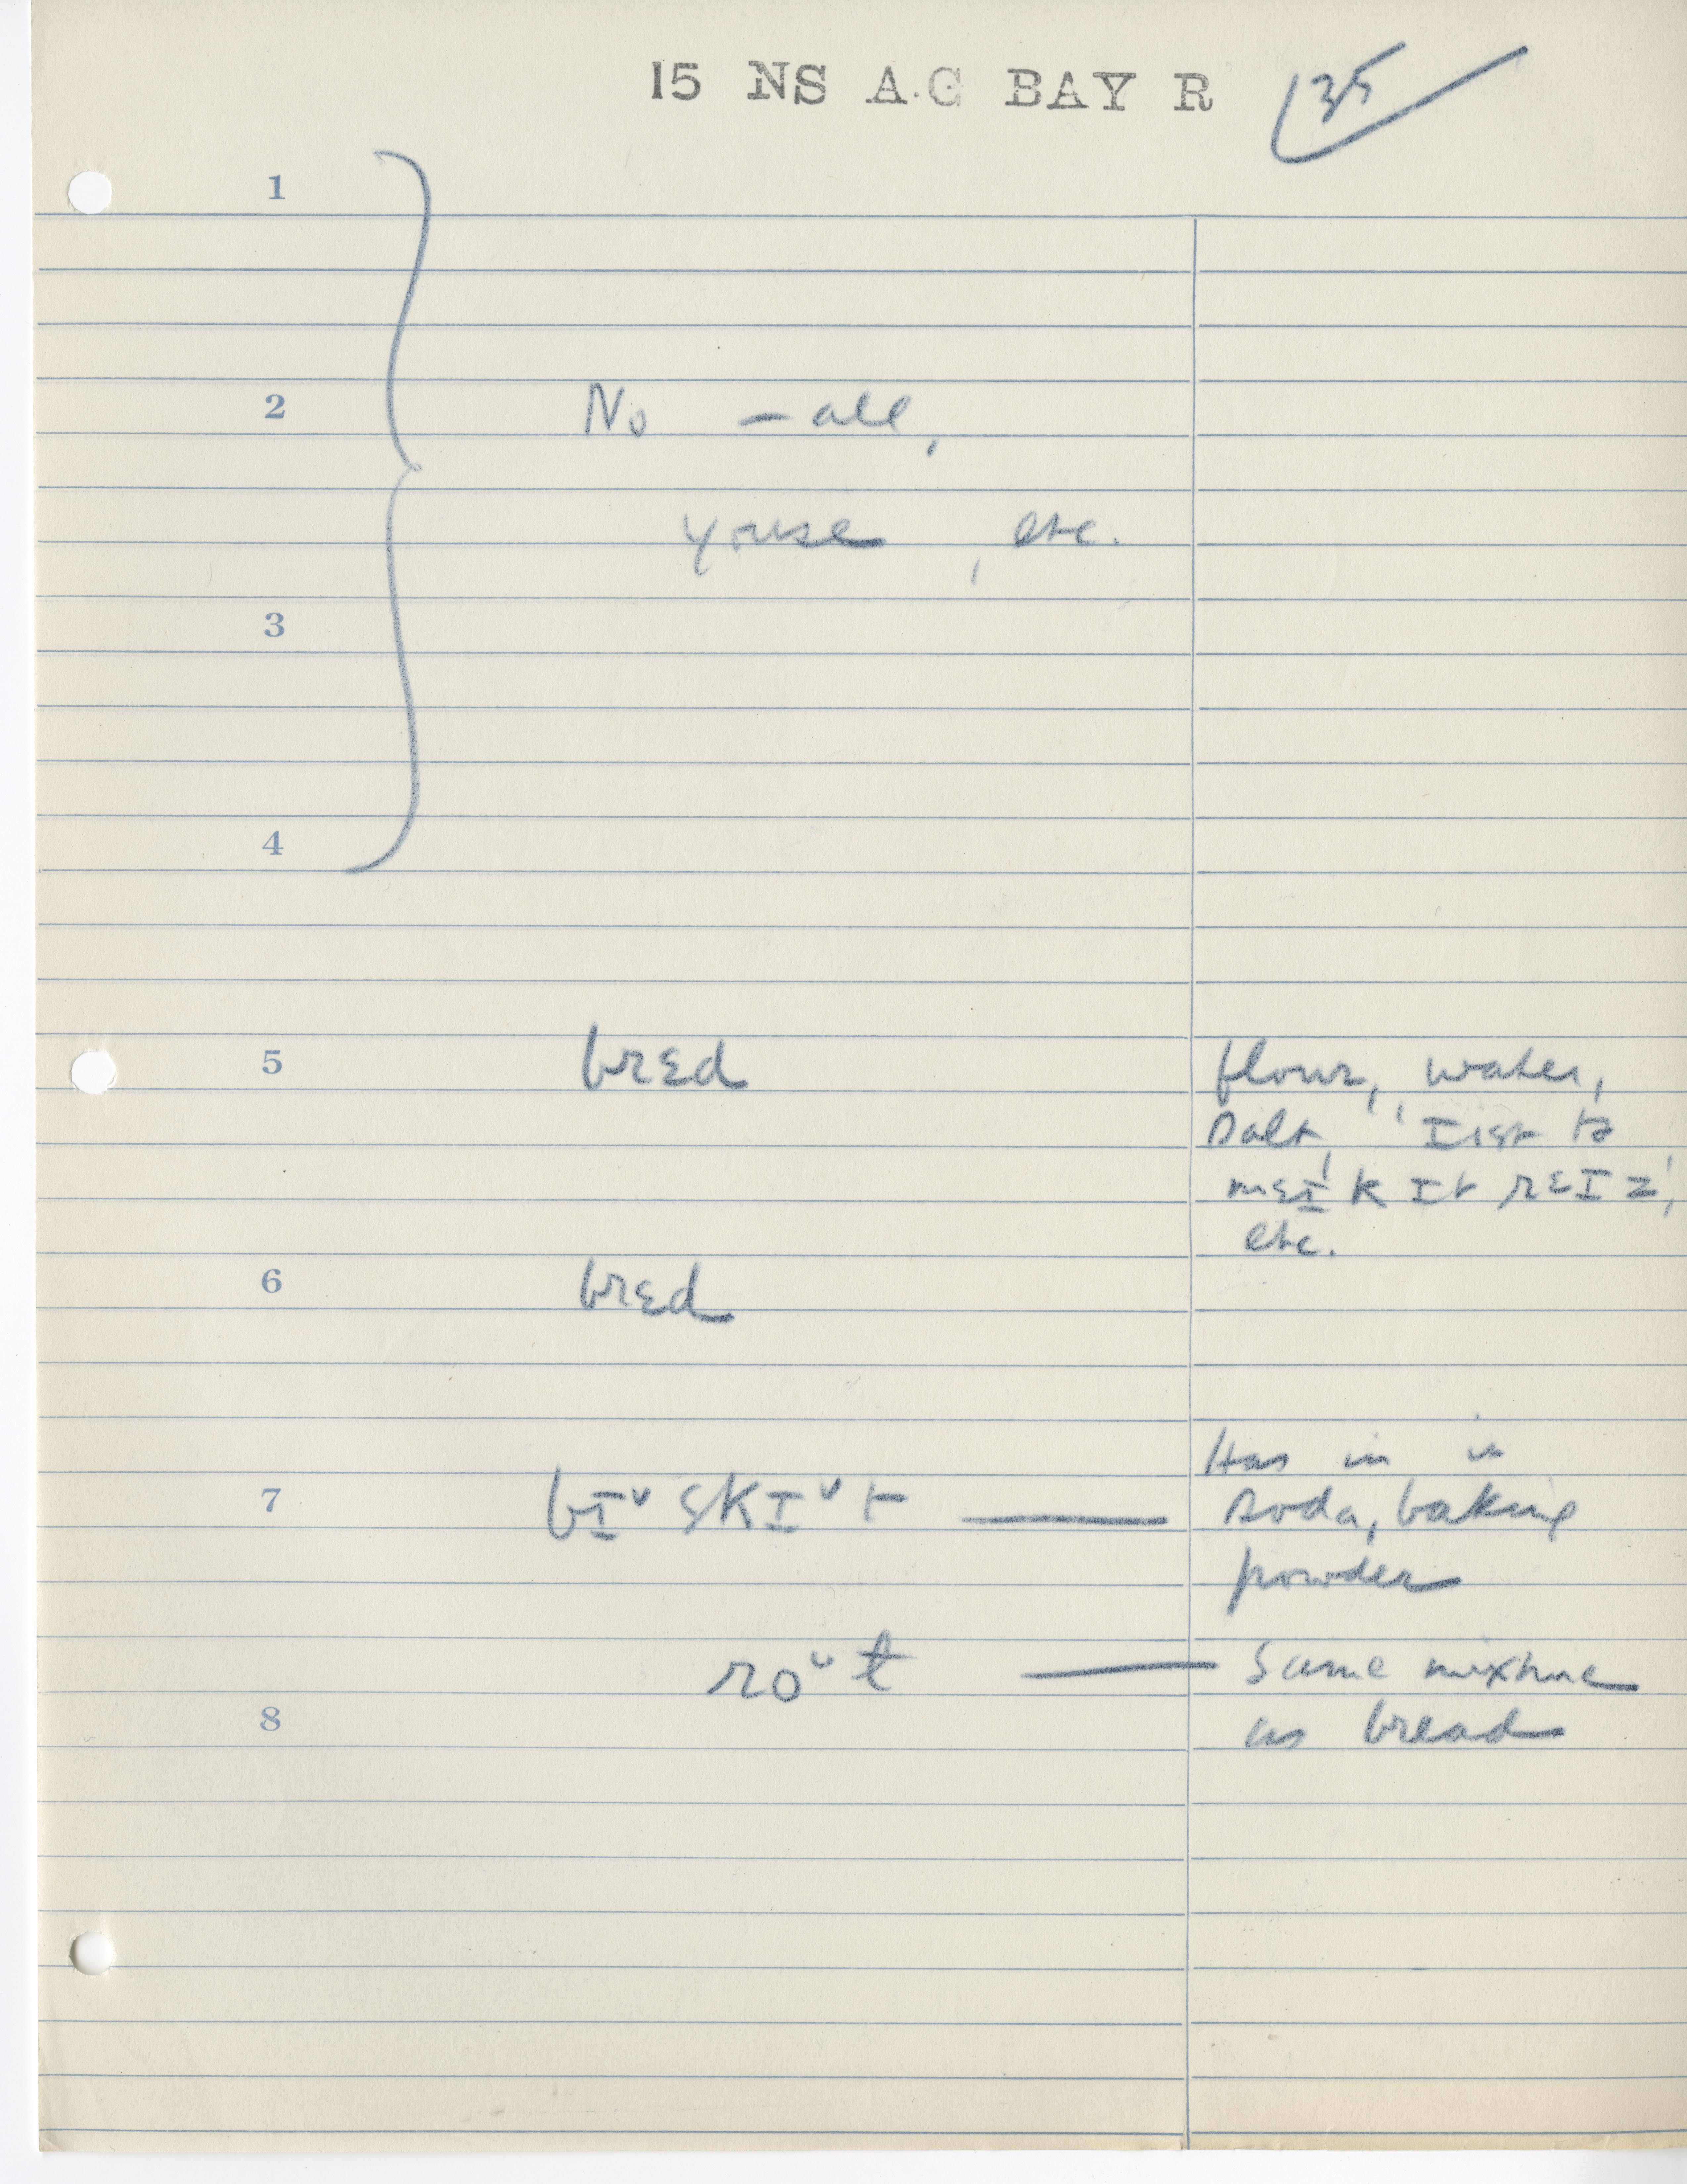 15 NS A.C BAY R 135
1
2 No – all,
youse, etc.
3
4
5 brɛd flour, water,
salt, 'ɪist tə
mɛɪk ɪt rɛɪz',
etc.
6 brɛd
7 bɪˇskɪˇt — Has in it
soda, baking
powder
roˇɫ — Same mixture
8 as bread